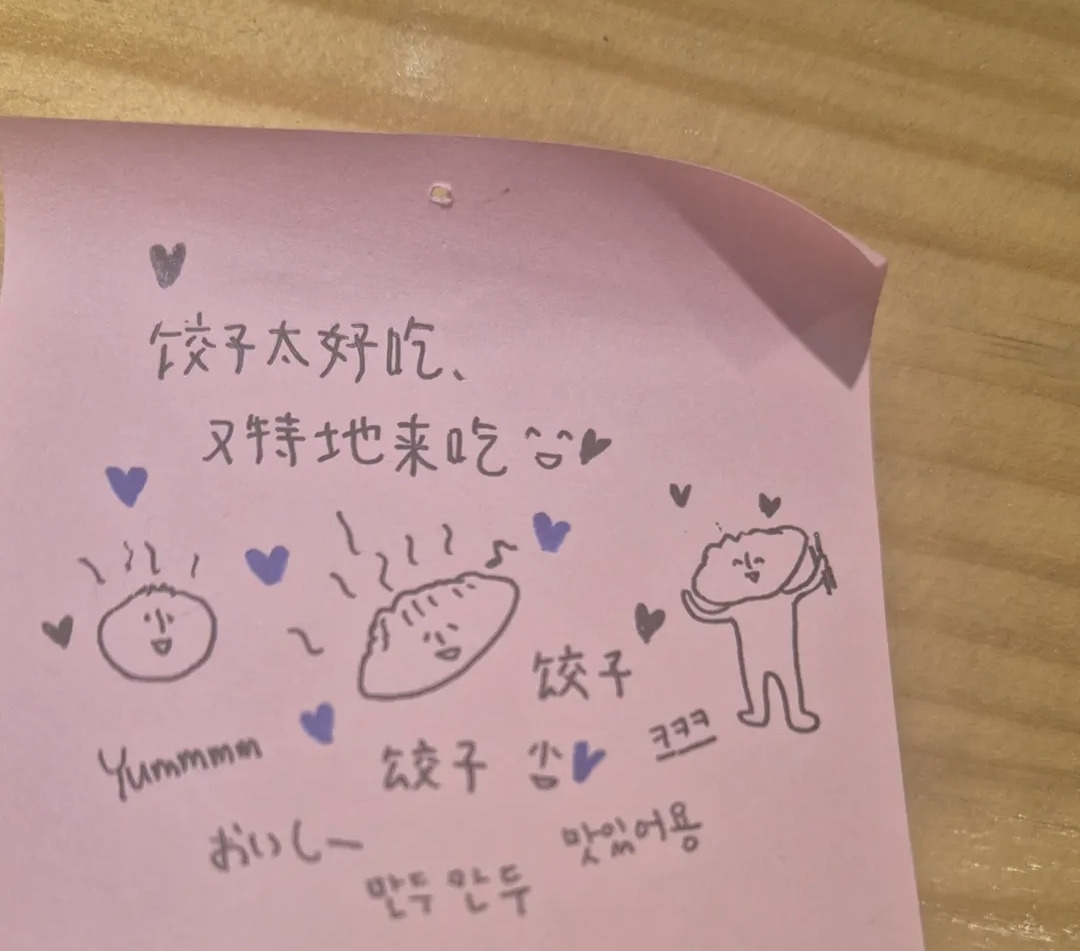 饺子太好吃、
又特地来吃
饺子
ㅋㅋㅋ
Yummmm
饺子
おいしー
맛있어용
만두 만두